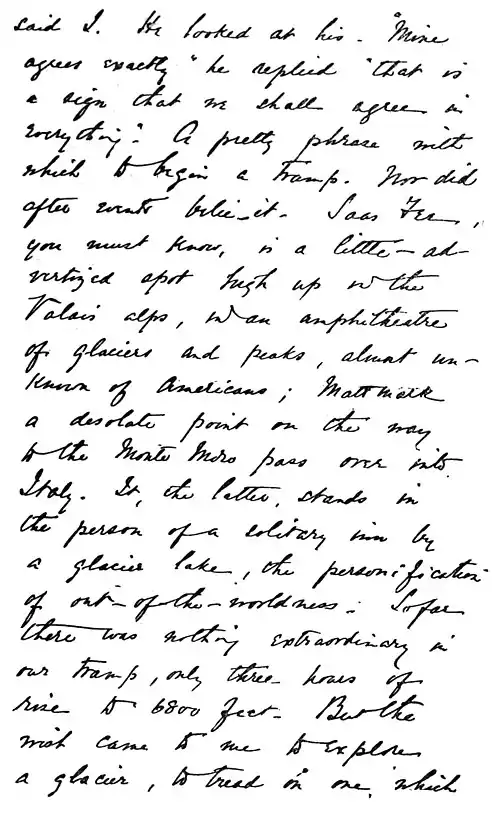 said I. He looked at his. "Mine
agrees exactly" he replied "that is
a sign that we shall agree in
everything". A pretty phrase with
which to begin a tramp. Nor did
after events belie it. Saas Fee,
you must know, is a little-ad-
vertized spot high up in the
Valais alps, in an amphitheatre
of glaciers and peaks, almost un-
known of Americans; Mattmark
a desolate point on the way
to the Monte Moro pass over into
Italy. It, the latter, stands in
the person of a solitary inn by
a glacier lake, the personification
of out-of-the-worldness. So far
there was nothing extraordinary in
our tramp, only three hours of
rise to 6800 feet. But the
wish came to me to explore
a glacier, to tread on one, which